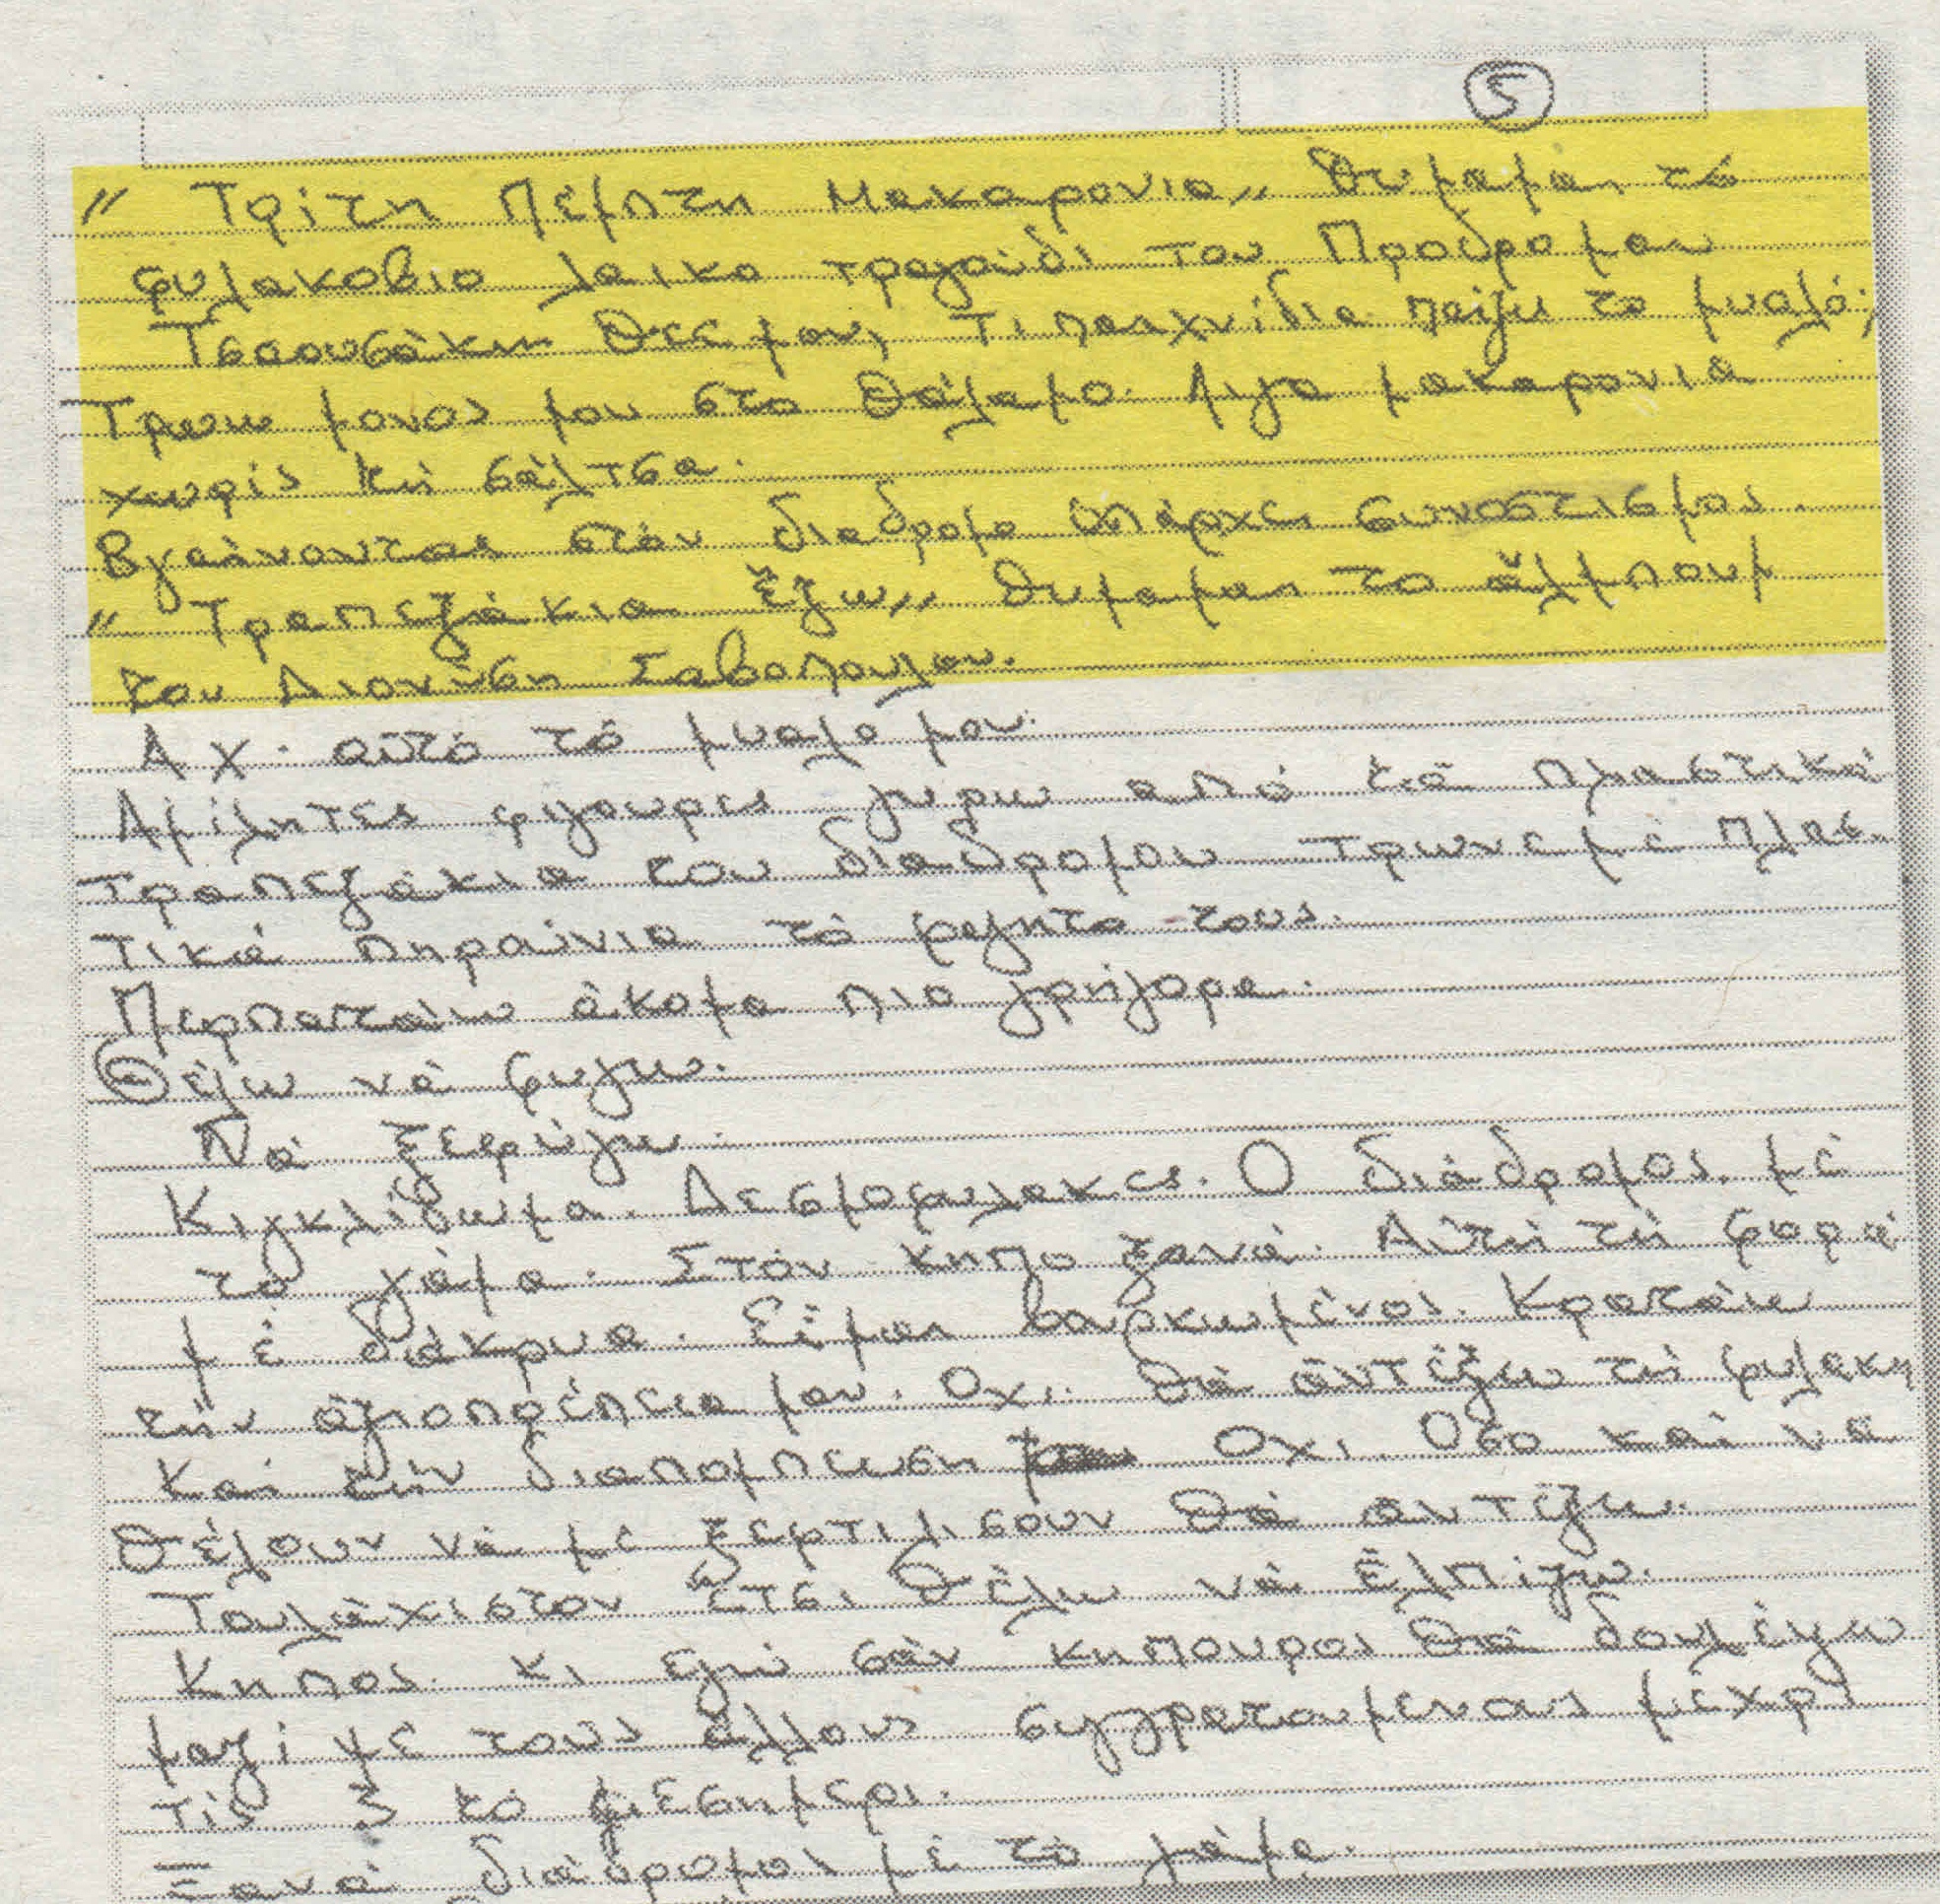 5
" Τρίτη Πέμπτη Μακαρονια,, θυμαμαι τό
φυλακοβιο λαικο τραγούδι του Προδρομου
Τσαουσάκη Θεέ μου, τι παιχνίδια παίζει το μυαλό;
Τρωω μονος μου στο θάλαμο. Λιγα μακαρονια
χωρίς τη σάλτσα.
Βγαίνοντας στόν διαδρομο υπάρχει συνοστισμος.
" Τραπεζάκια ἔξω,, θυμαμαι το ἄλμπουμ
του Διονύση Σαβοπουλου.
Αχ. αὐτό τό μυαλο μου.
Αμίλητες φιγουρες γυρω από τα πλαστικά
τραπεζάκια του διαδρομου τρωνε μέ πλασ.
τικά πηρούνια τό φαγητο τους.
Περπαταω ἀκομα πιο γρήγορα.
Θέλω νά φυγω.
Νά ξεφύγω.
Κιγκλίδωμα. Δεσμοφυλακες. Ο διάδρομος. μέ
το χάμα. Στόν κηπο ξανά. Αὐτή τή φορά
μέ δάκρυα. Εἶμαι βαρκωμένος. Κρατάω
τήν ἀξιοπρέπεια μου. Οχι. Θά ἀντέξω τή φυλακη
Καί τήν διαπομπευση Οχι. Οσο καί να
θέλουν νά μέ ξεφτιλισούν θά αντεξω.
Τουλάχιστον ἔτσι θέλω νά ἐλπίζω.
Κηπος. κι εγώ σάν κηπουρος θά δουλέψω
μαζί μέ τους ἄλλους συγκρατουμενους μέχρι
τίς 3 το μεσημερι.
Ξανά διάδρομος μέ τό χάμα.